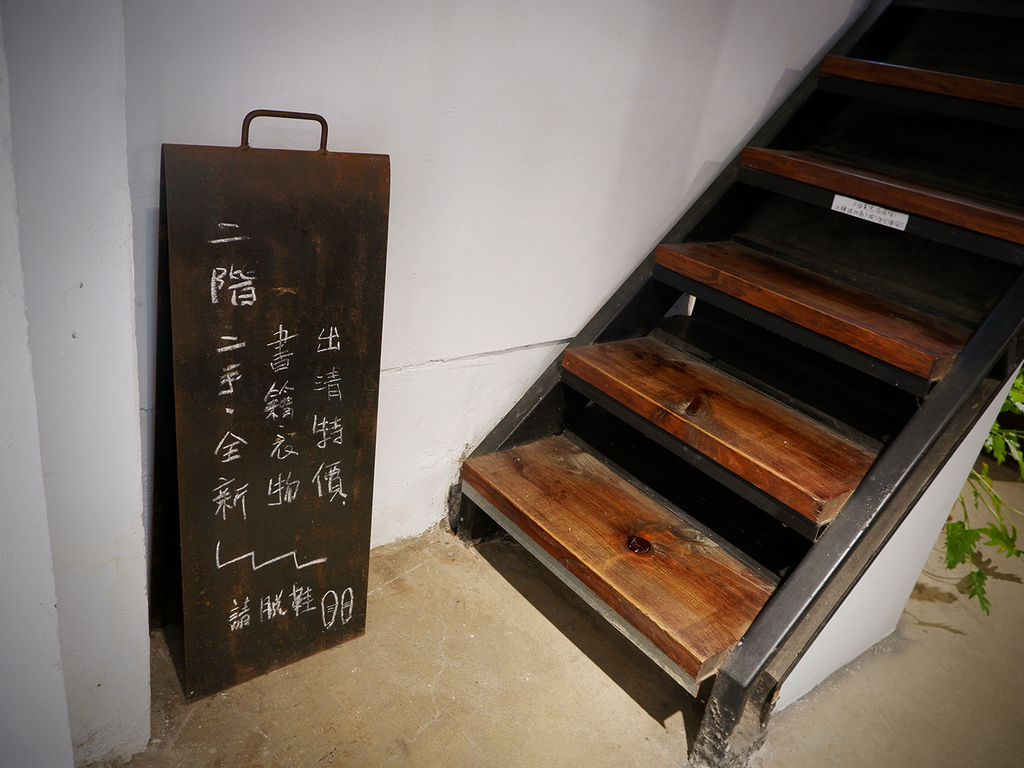 二階 二手・全新
書籍、衣物
出清特價
請脫鞋